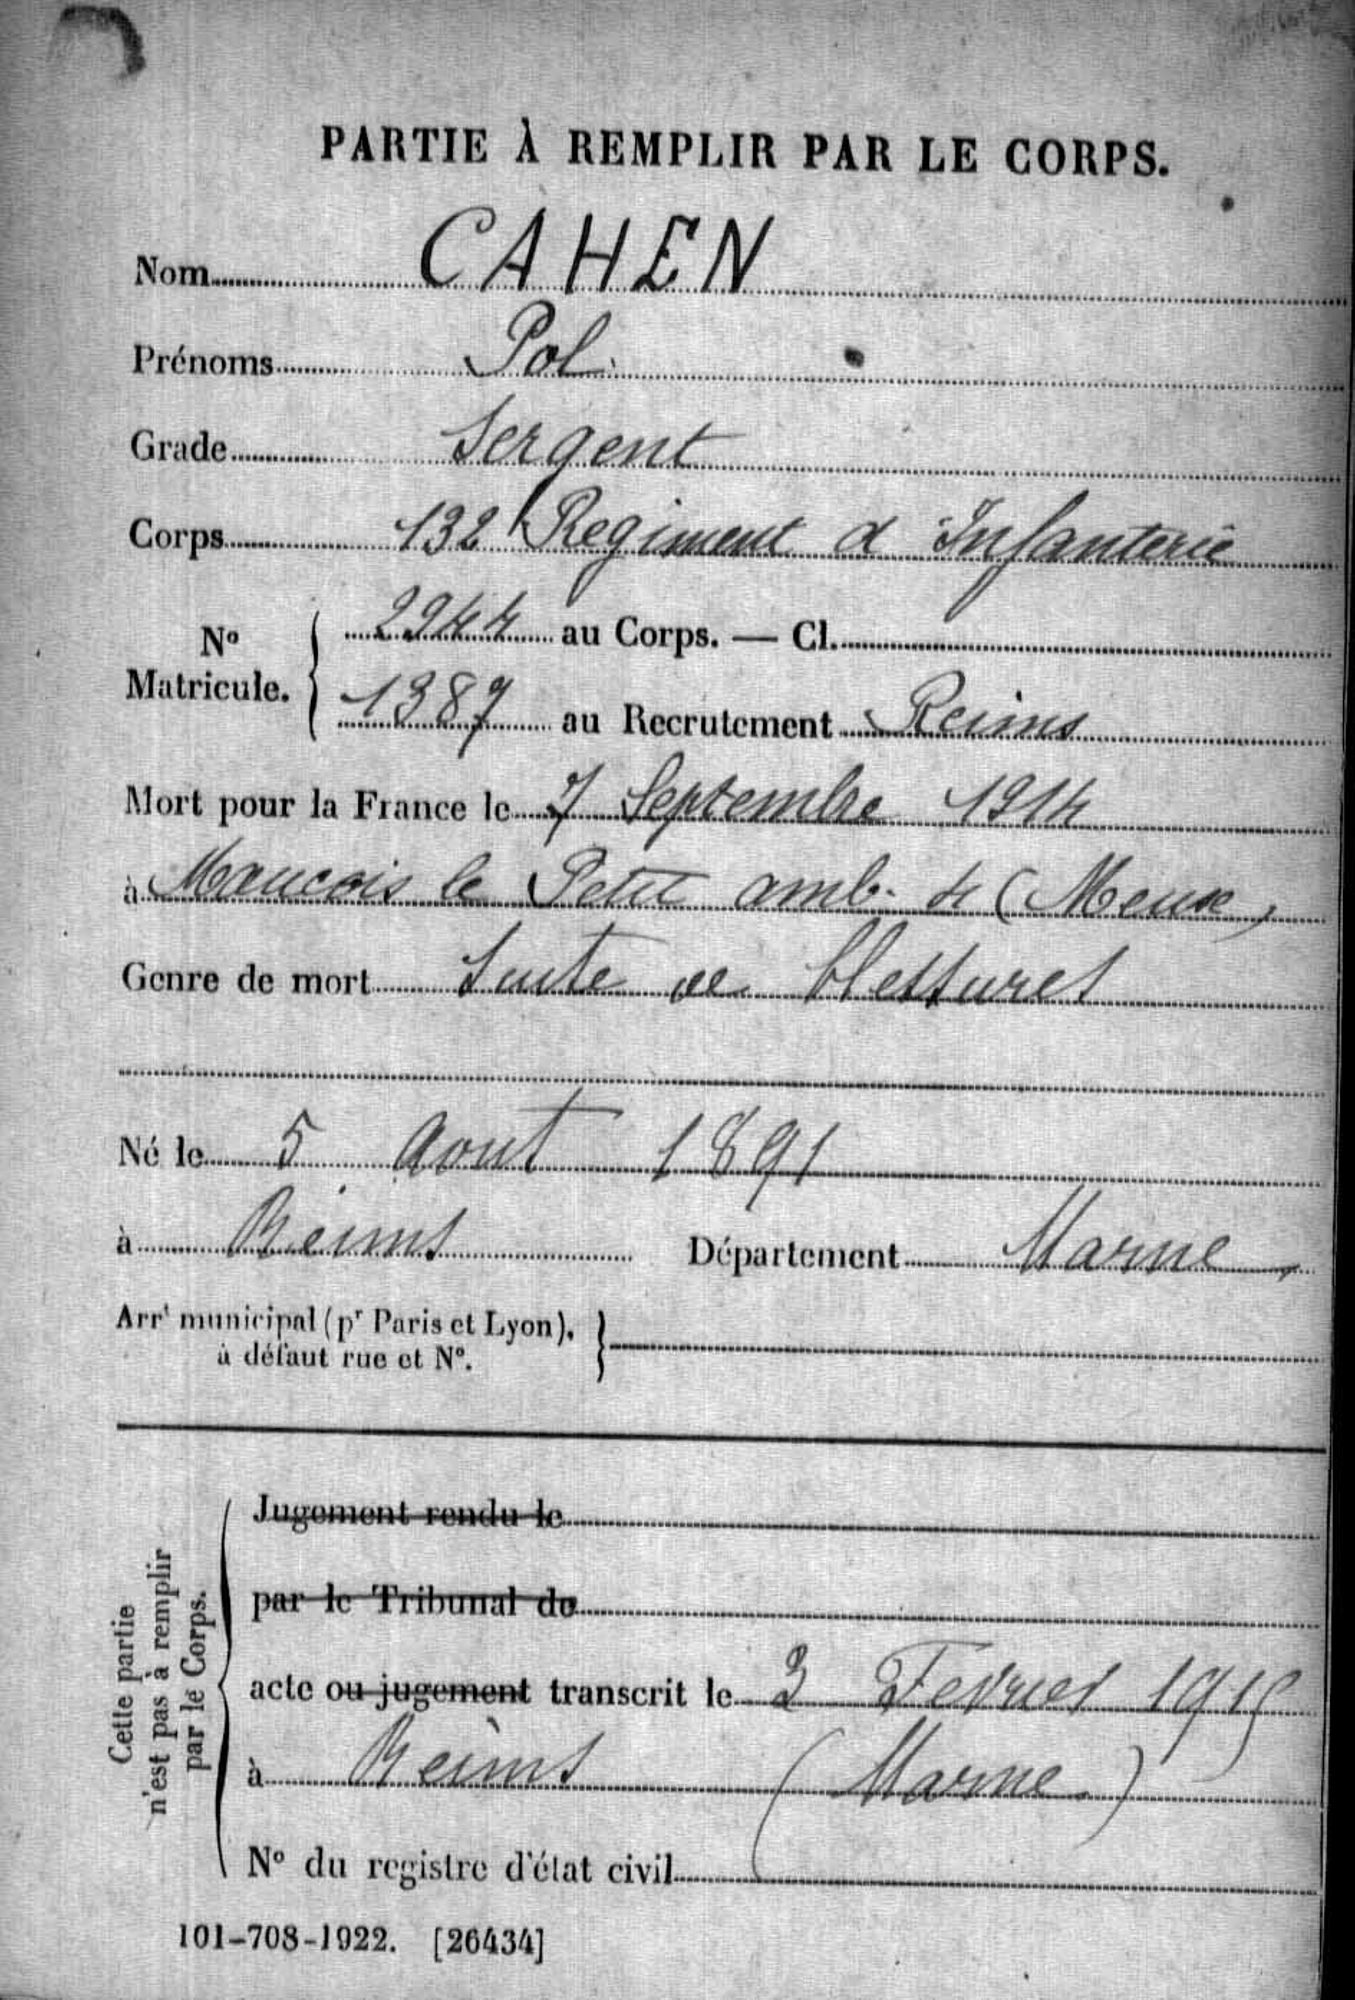 PARTIE À REMPLIR PAR LE CORPS.
Nom CAHEN
Prénoms Pol
Grade Sergent
Corps 132 Regiment d'Infanterie
No Matricule. 2944 au Corps. — Cl.
1387 au Recrutement Reims
Mort pour la France le 7 Septembre 1914
à le Petit amb. 4 (Meuse)
Genre de mort Suite de blessures
Né le 5 Aout 1891
à Reims Département Marne
Arrt municipal (pr Paris et Lyon),
à défaut rue et No.
Cette partie
n'est pas à remplir
par le Corps.
Jugement rendu le
par le Tribunal de
acte ou jugement transcrit le 3 Fevrier 1915
à Reims (Marne)
No du registre d'état civil
101-708-1922. [26434]